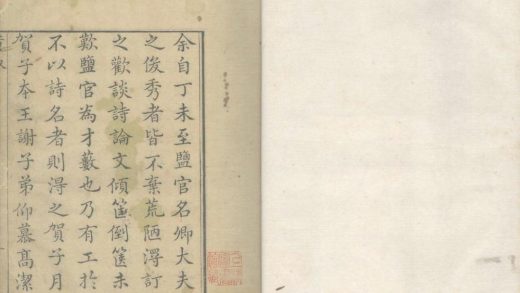 余自丁未至鹽官名卿大夫
之俊秀者皆不棄荒陋淂訂
之歡談詩論文傾筐倒篋未
歎鹽官為才藪也乃有工於
不以詩名者則淂之賀子月
賀子本王謝子弟仰慕髙潔